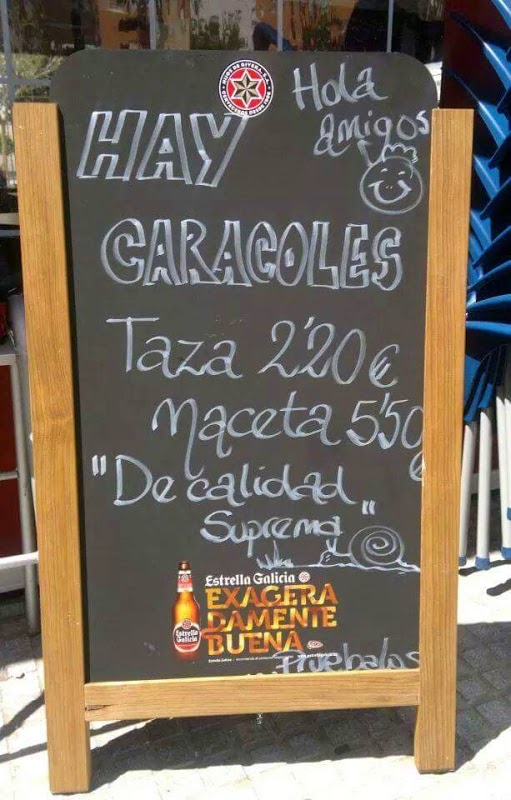 HIJOS DE RIVERA, S.A.
Hola
amigos
HAY
CARACOLES
Taza 2'20 €
Maceta 5'50 €
"De calidad
Suprema"
Estrella Galicia
EXAGERA
DAMENTE
BUENA
Estrella
Galicia
Pruebalos